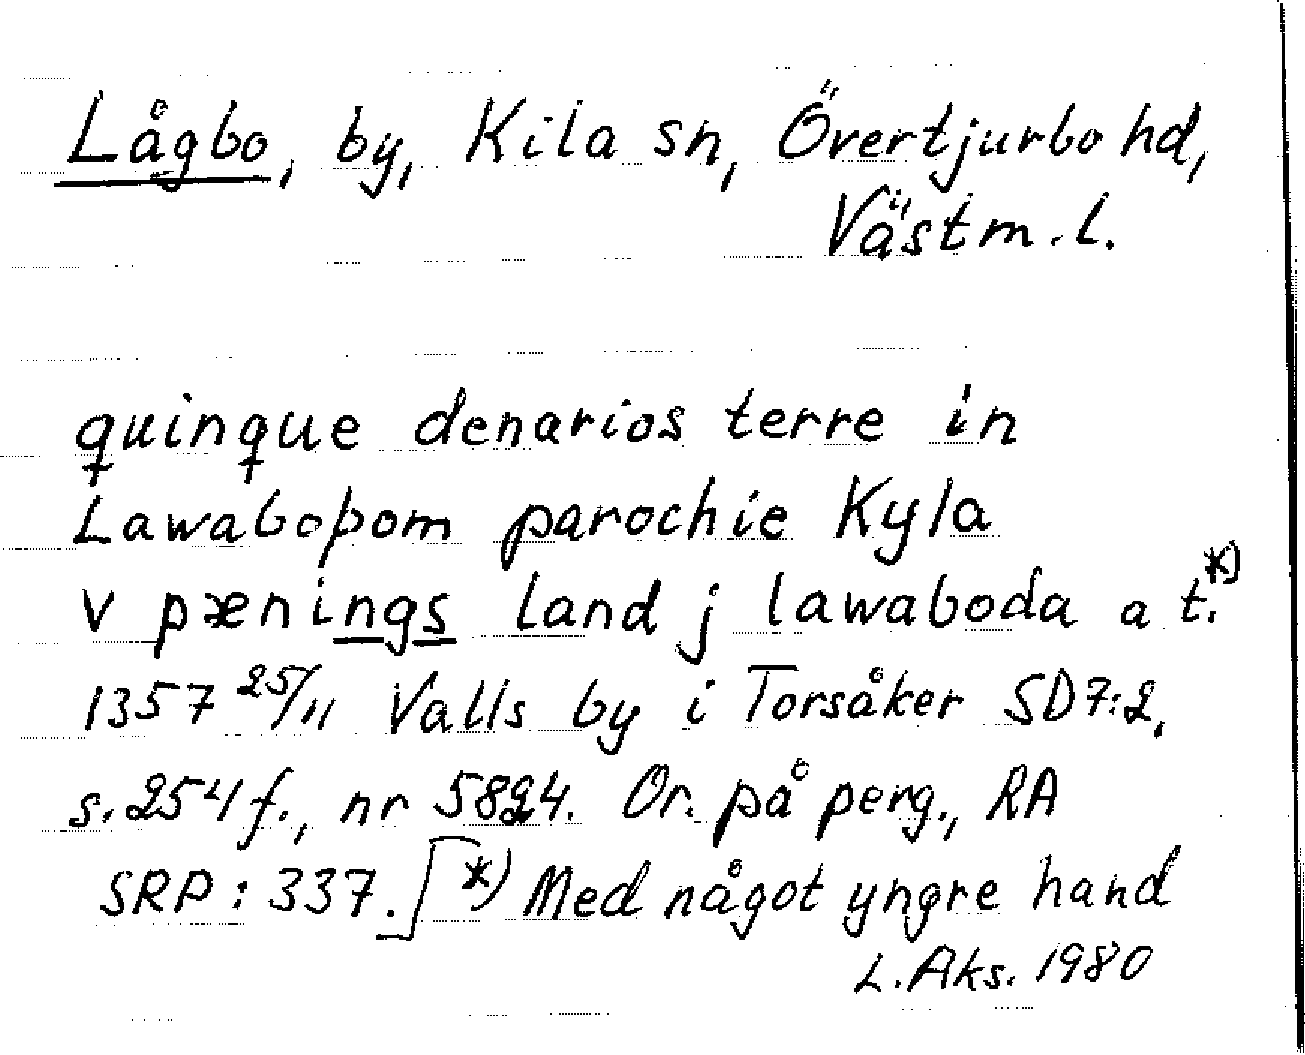 Lågbo, by, Kila sn, Övertjurbo hd,
Västm. l.
quinque denarios terre in
Lawaboþom parochie Kyla
v pænings land j lawaboda a t.*)
1357 25/11 Valls by i Torsåker SD7:2,
s. 254 f., nr 5824. Or. på perg., RA
SRP: 337.⌡⌈*) Med något yngre hand
L. Aks. 1980